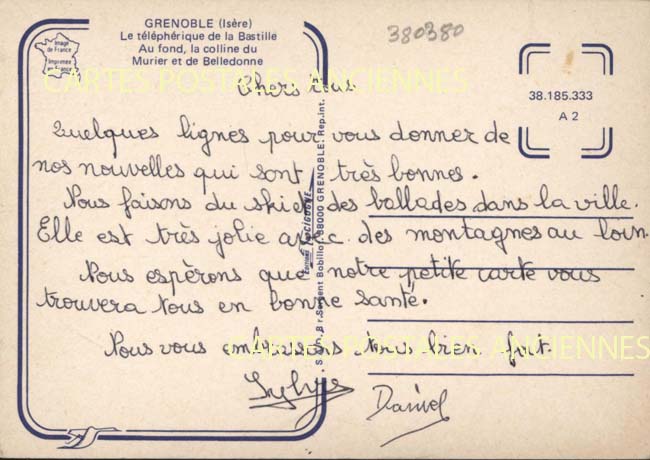 GRENOBLE (Isère)
Le téléphérique de la Bastille
Au fond, la colline du
Murier et de Belledonne
Image
de France
Imprimée
en France
380380
38.185.333
A 2
CARTES POSTALES ANCIENNES
Chers tous
Quelques lignes pour vous donner de
nos nouvelles qui sont très bonnes.
Nous faisons du skiet des ballades dans la ville.
Elle est très jolie avec des montagnes au loin.
Nous espérons que notre petite carte vous
trouvera tous en bonne santé.
Nous vous embrassons tous bien fort.
CARTES POSTALES ANCIENNES
Daniel
8 r. Sergent Bobillot, 38000 GRENOBLE. Rep.int.